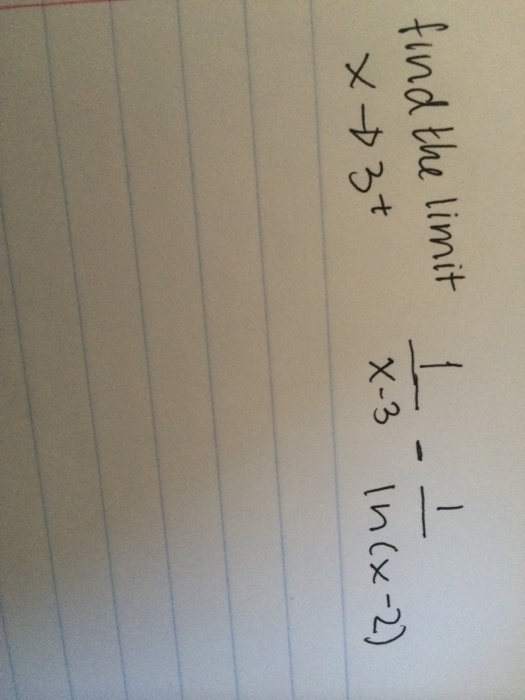 find the limit 1/x-3 - 1/ln(x-2)
x→3⁺